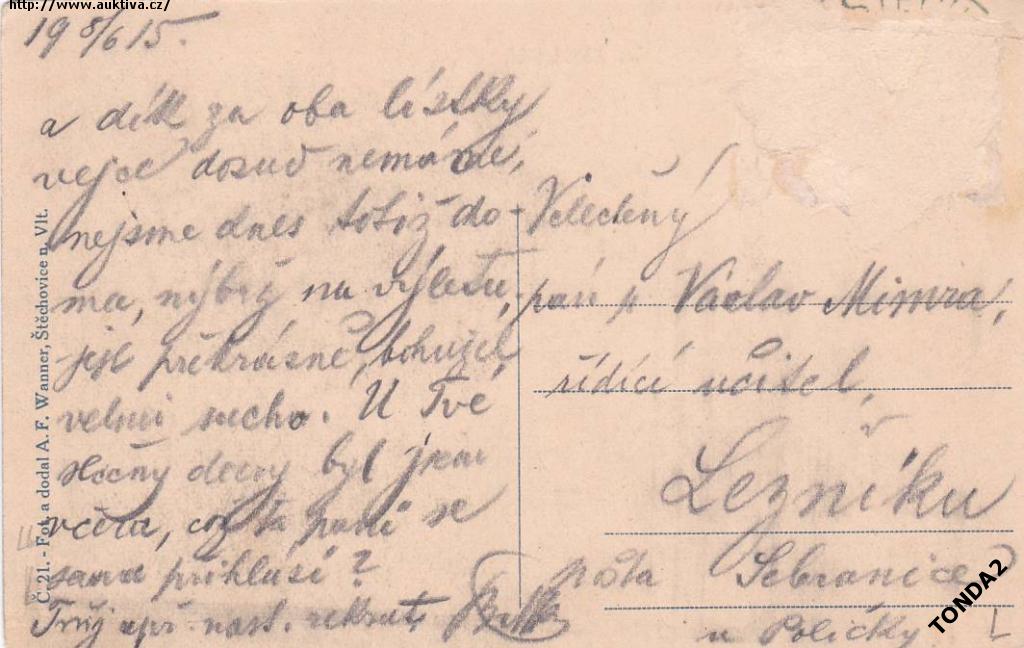 http://www.auktiva.cz/
19 8/6 15.
a dík za oba lístky
vejce dosud nemáme,
nejsme dnes totiž do-
ma, nýbrž na výletu,
jest překrásně, bohužel,
velmi sucho. U Tvé
slečny dcery byl jsem
včera, což ta paní se
sama přihlásí?
Tvůj upř. nast. rekrut,
Velectěný
pan p. Václav Mimra,
řídící učitel,
Lezníku
pošta Sebranice
u Poličky
Č. 21. - Fot. a dodal A. F. Wanner, Štěchovice n. Vlt.
TONDA2